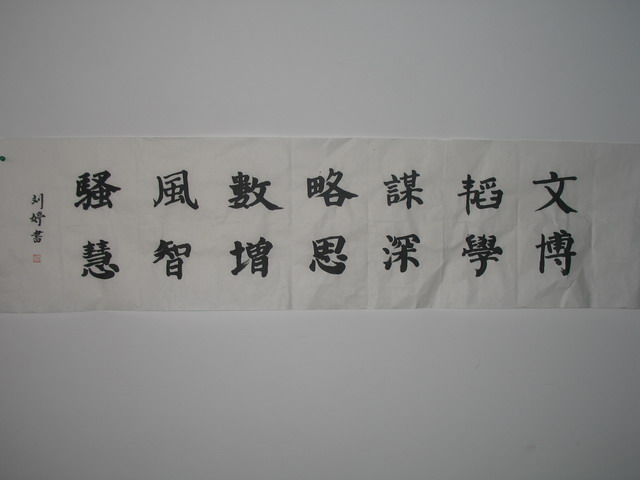 文韬謀略數風騷
博學深思增智慧
刘婷書